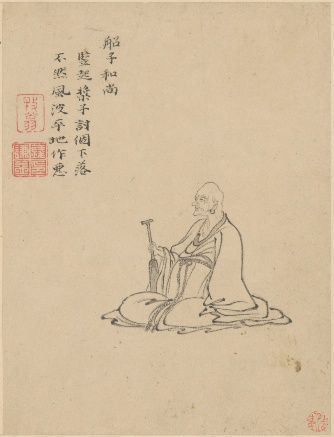 船子和尚
豎起槳子討個下落
不然風波平地作惡